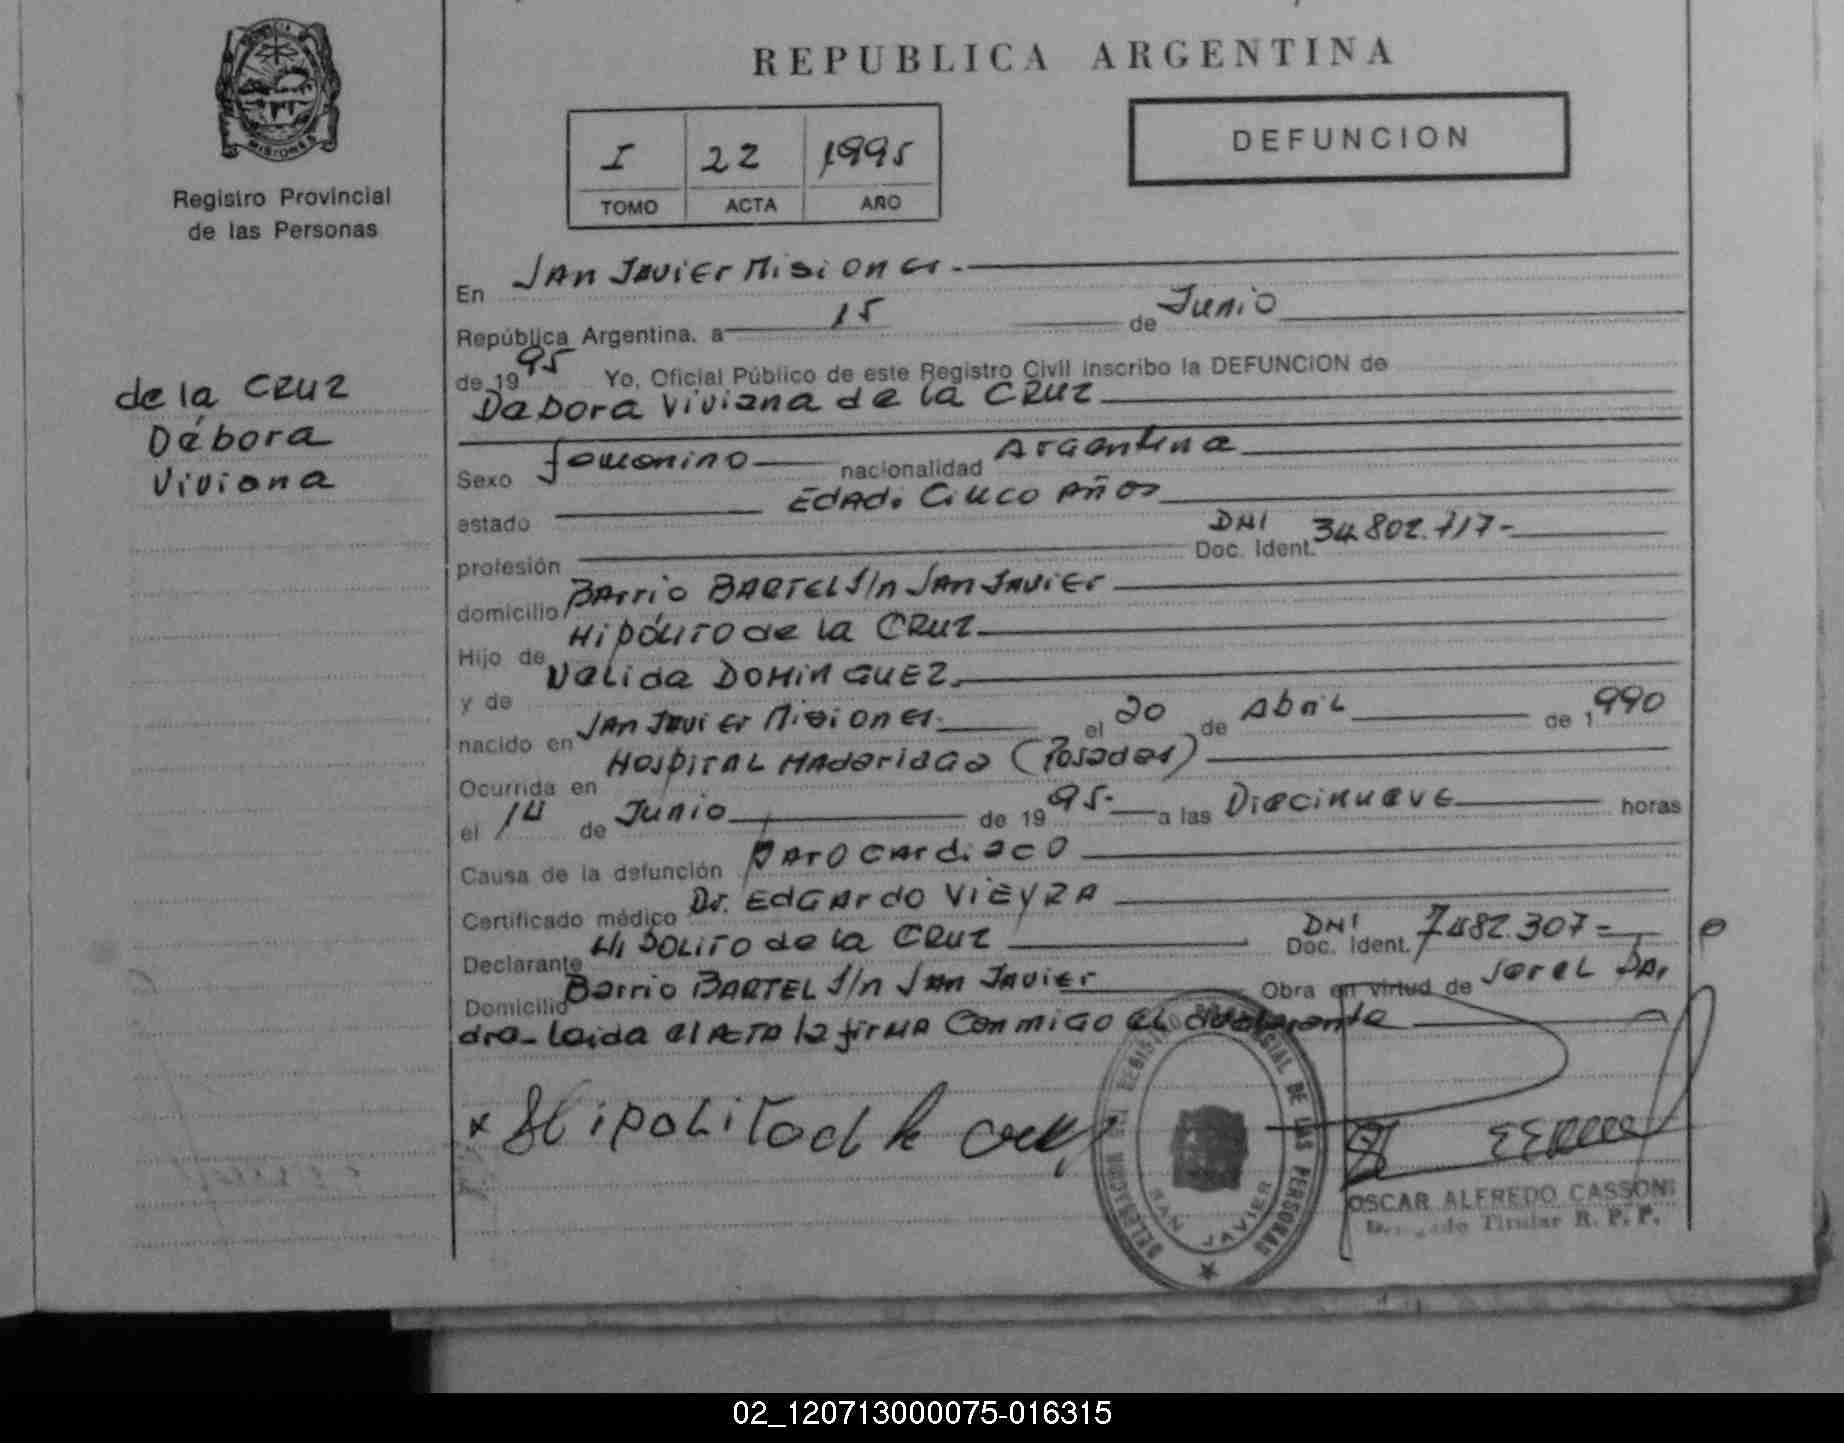 PROVINCIA DE
MISIONES
Registro Provincial
de las Personas
REPUBLICA ARGENTINA
I 22 1995
TOMO ACTA AÑO
DEFUNCION
En San Javier Misiones.-
República Argentina, a 15 de Junio
de 1995 Yo, Oficial Público de este Registro Civil inscribo la DEFUNCION de
Debora Viviana de la CRUZ
de la CRUZ
Débora
Viviana
Sexo femenino nacionalidad Argentina
estado EDAD. Cinco Años
profesión Doc. Ident. DNI 34.802.717-
domicilio Barrio BARTEL S/n San Javier
Hijo de Hipólito de la CRUZ
y de Nelida DOMINGUEZ
nacido en San Javier Misiones. el 20 de Abril de 1990
Ocurrida en Hospital Madariaga (Posadas)
el 14 de Junio de 1995- a las Diecinueve horas
Causa de la defunción Paro cardiaco
Certificado médico Dr. Edgardo VIEYRA
Declarante Hipolito de la CRUZ Doc. Ident. DNI 7482.307=
Domicilio Barrio BARTEL S/n San Javier Obra en virtud de ser el pa-
dre- Leida el Acta la firma conmigo el declarante
x Hipolito de la cruz
REGISTRO PROVINCIAL DE LAS PERSONAS
SAN JAVIER
OSCAR ALFREDO CASSONI
Titular R. P. P.
02_120713000075-016315